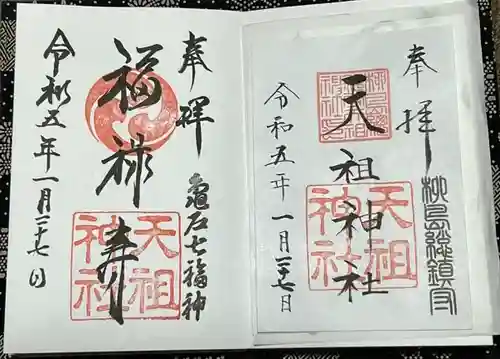 奉拝
柳島総鎮守
天祖神社
天祖神社
令和五年一月二十七日
奉拝
亀戸七福神
福禄寿
天祖神社
令和五年一月二十七日